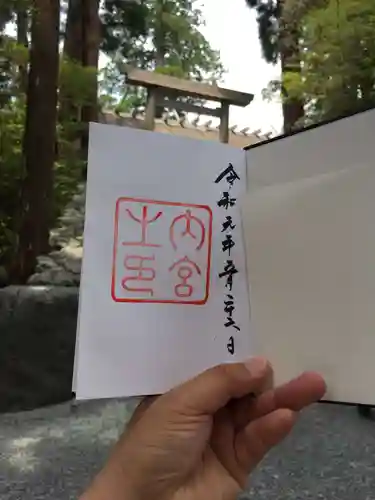 令和元年五月二十六日
内宮
之印